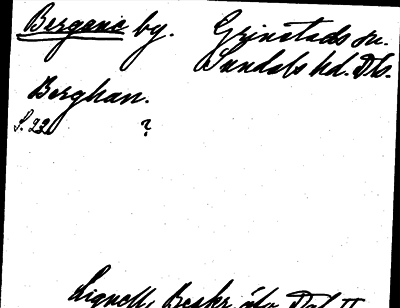 Bergane by. Grinstads sn.
Sundals hd. Dls.
Berghan.
S. 23 ?
Lignell, Beskr. öfv. Dal II